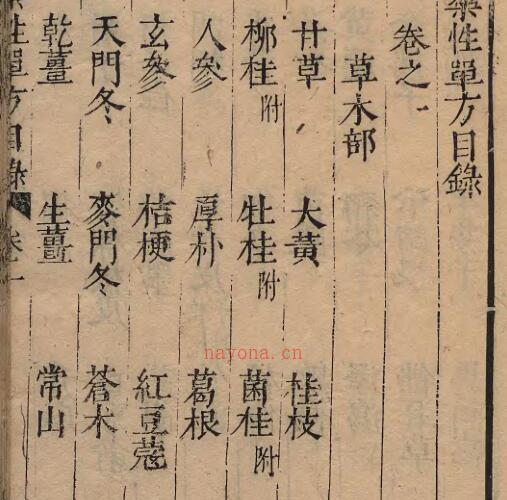 藥性單方目錄
卷之一
草木部
甘草 大黃 桂枝
柳桂附 牡桂附 菌桂附
人參 厚朴 葛根
玄參 桔梗 紅豆蔻
天門冬 麥門冬 蒼木
乾薑 生薑 常山
藥性單方目錄 卷一
nayona.cn